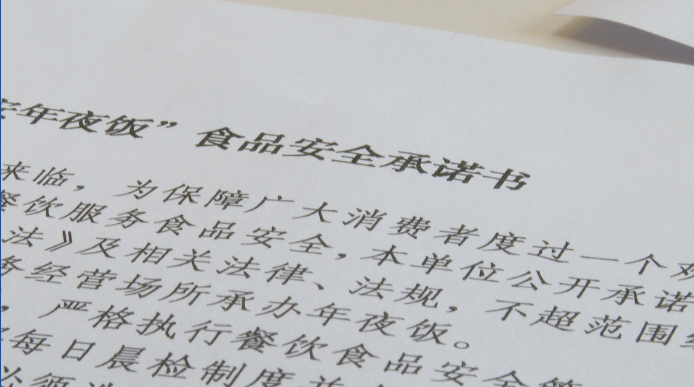 年夜饭”食品安全承诺书
来临，为保障广大消费者度过一个
餐饮服务食品安全，本单位公开承诺
法》及相关法律、法规，不超范围
务经营场所承办年夜饭。
，严格执行餐饮食品安全
每日晨检制度并
必须